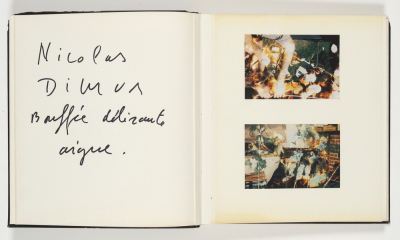 Nicolas
Dimus
Bouffée délirante
aigue.